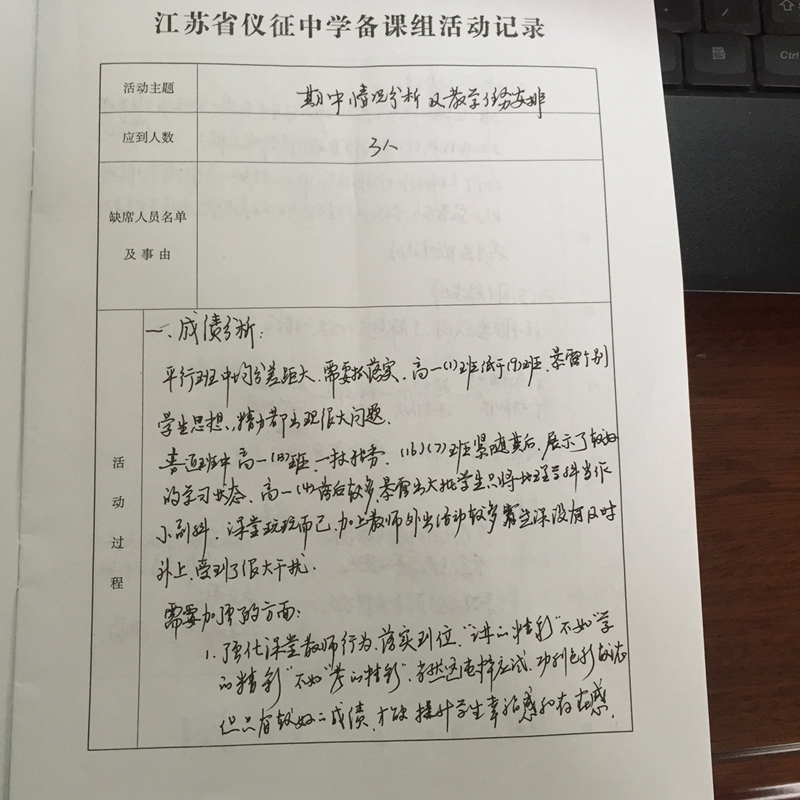 江苏省仪征中学备课组活动记录
活动主题
期中情况分析及教学任务安排
应到人数
3人
缺席人员名单
及事由
活动过程
一、成绩分析：
平行班中均分差距大、需要抓落实、高一(1)班低于(9)班、暴露个别
学生思想、精力都出现很大问题.
普通班中高一(18)班、一枝独秀、(16)(7)班紧随其后、展示了较好
的学习状态、高一(4)落后较多暴露出大批学生只将地理学科当作
小副科、课堂玩玩而已、加上教师外出活动较多 课没有及时
补上、受到了很大干扰.
需要加强的方面：
1. 强化课堂教师行为、落实到位、"讲的精彩"不如"学
的精彩"不如"考的精彩"、当然这电 应试、功利色彩较浓
但只有较好的成绩、才能提升学生幸福感和存在感.